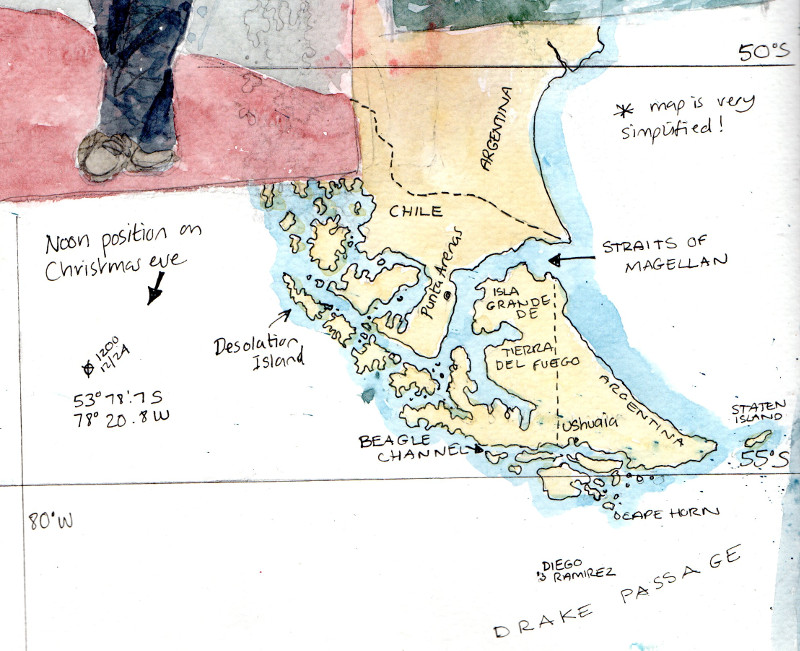 50°S
* map is very
simplified!
ARGENTINA
CHILE
Noon position on
Christmas eve
STRAITS OF
MAGELLAN
Punta Arenas
ISLA
GRANDE
DE
TIERRA
DEL FUEGO
Desolation
Island
1200
12/24
53° 78'.7 S
78° 20.8 W
ARGENTINA
STATEN
ISLAND
ushuaia
BEAGLE
CHANNEL
55°S
80°W
CAPE HORN
DIEGO
RAMIREZ
DRAKE PASSAGE